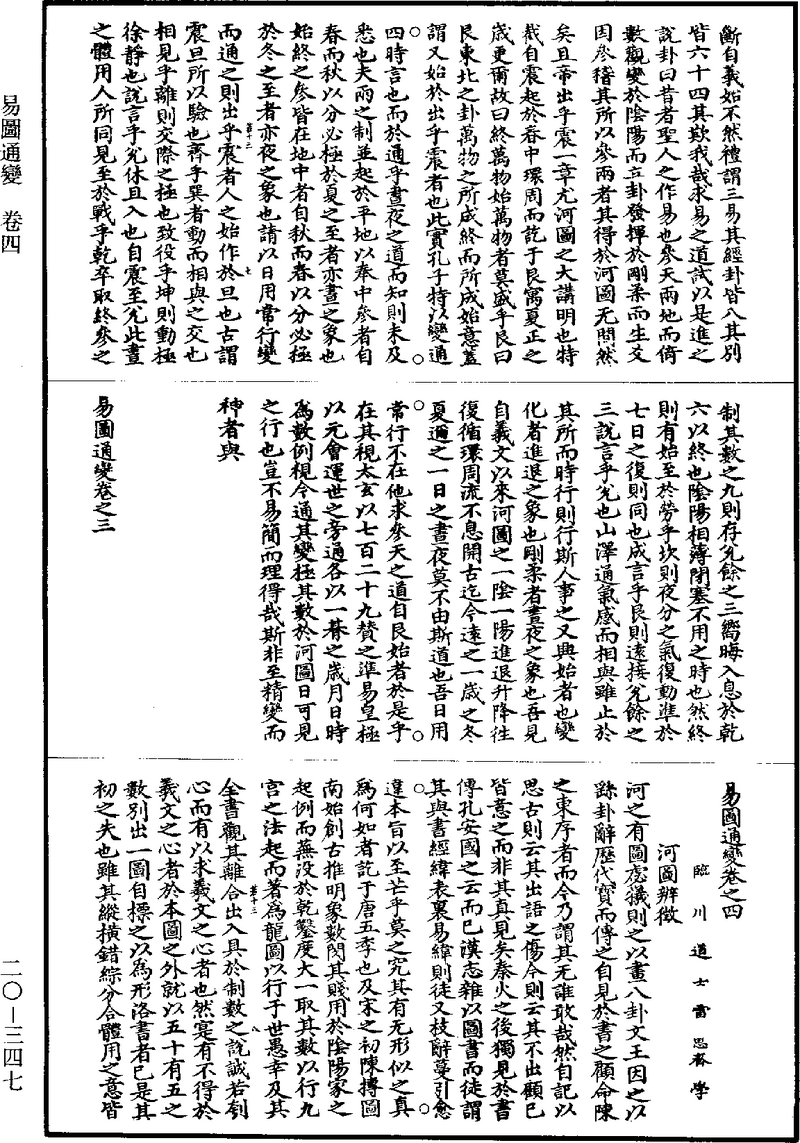 易圖通變　卷四
二〇－三四七
斷自羲始不然禮謂三易其經卦皆八其別
皆六十四其欺我哉求易之道試以是進之
說卦曰昔者聖人之作易也參天兩地而倚
數觀變於陰陽而立卦發揮於剛柔而生爻
因參稽其所以參兩者其得於河圖无間然
矣且帝出乎震一章尤河圖之大講明也特
截自震起於春中環周而訖于艮寓夏正之
歲更爾故曰終萬物始萬物者莫盛乎艮曰
艮東北之卦萬物之所成終而所成始意蓋
謂又始於出乎震者也此實孔子特以變通
四時言也而於通乎晝夜之道而知則未及
悉也夫兩之制並起於平地以奉中參者自
春而秋以分必極於夏之至者亦晝之象也
始終之參皆在地中者自秋而春以分必極
於冬之至者亦夜之象也請以日用常行變
而通之則出乎震者人之始作於旦也古謂
震旦所以驗也齊乎巽者動而相與之交也
相見乎離則交際之極也致役乎坤則動極
徐靜也說言乎兌休且入也自震至兌此晝
之體用人所同見至於戰乎乾卒取終參之
制其數之九則存兌餘之三嚮晦入息於乾
六以終也陰陽相薄閉塞不用之時也然終
則有始至於勞乎坎則夜分之氣復動準於
七日之復則同也成言乎艮則遠接兌餘之
三說言乎兌也山澤通氣感而相與雖止於
其所而時行則行斯人事之又興始者也變
化者進退之象也剛柔者晝夜之象也吾見
自羲文以來河圖之一陰一陽進退升降往
復循環周流不息開古迄今遠之一歲之冬
夏邇之一日之晝夜莫不由斯道也吾日用
常行不在他求參天之道自艮始者於是乎
在其視太玄以七百二十九贊之準易皇極
以元會運世之旁通各以一朞之歲月日時
為數例視今通其變極其數於河圖日可見
之行也豈不易簡而理得哉斯非至精變而
神者與
易圖通變卷之三
易圖通變卷之四
臨川道士雷思齊學
河圖辨徵
河之有圖虙犧則之以畫八卦文王因之以
繇卦辭歷代寶而傳之自見於書之顧命陳
之東序者而今乃謂其无誰敢哉然自記以
思古則云其出語之傷今則云其不出顧已
皆意之而非其真見矣秦火之後獨見於書
傳孔安國之云而已漢志雜以圖書而徒謂
其與書經緯表裏易緯則徒又枝辭蔓引愈
違本旨以至芒乎莫之究其有无形似之真
為何如者訖于唐五季也及宋之初陳摶圖
南始創古推明象數閔其賤用於陰陽家之
起例而蕪没於乾鑿度大一取其數以行九
宮之法起而著為龍圖以行于世愚幸及其
全書觀其離合出入具於制數之說誠若刳
心而有以求羲文之心者也然寔有不得於
羲文之心者於本圖之外就以五十有五之
數別出一圖自標之以為形洛書者已是其
初之失也雖其縱橫錯綜分合體用之意皆